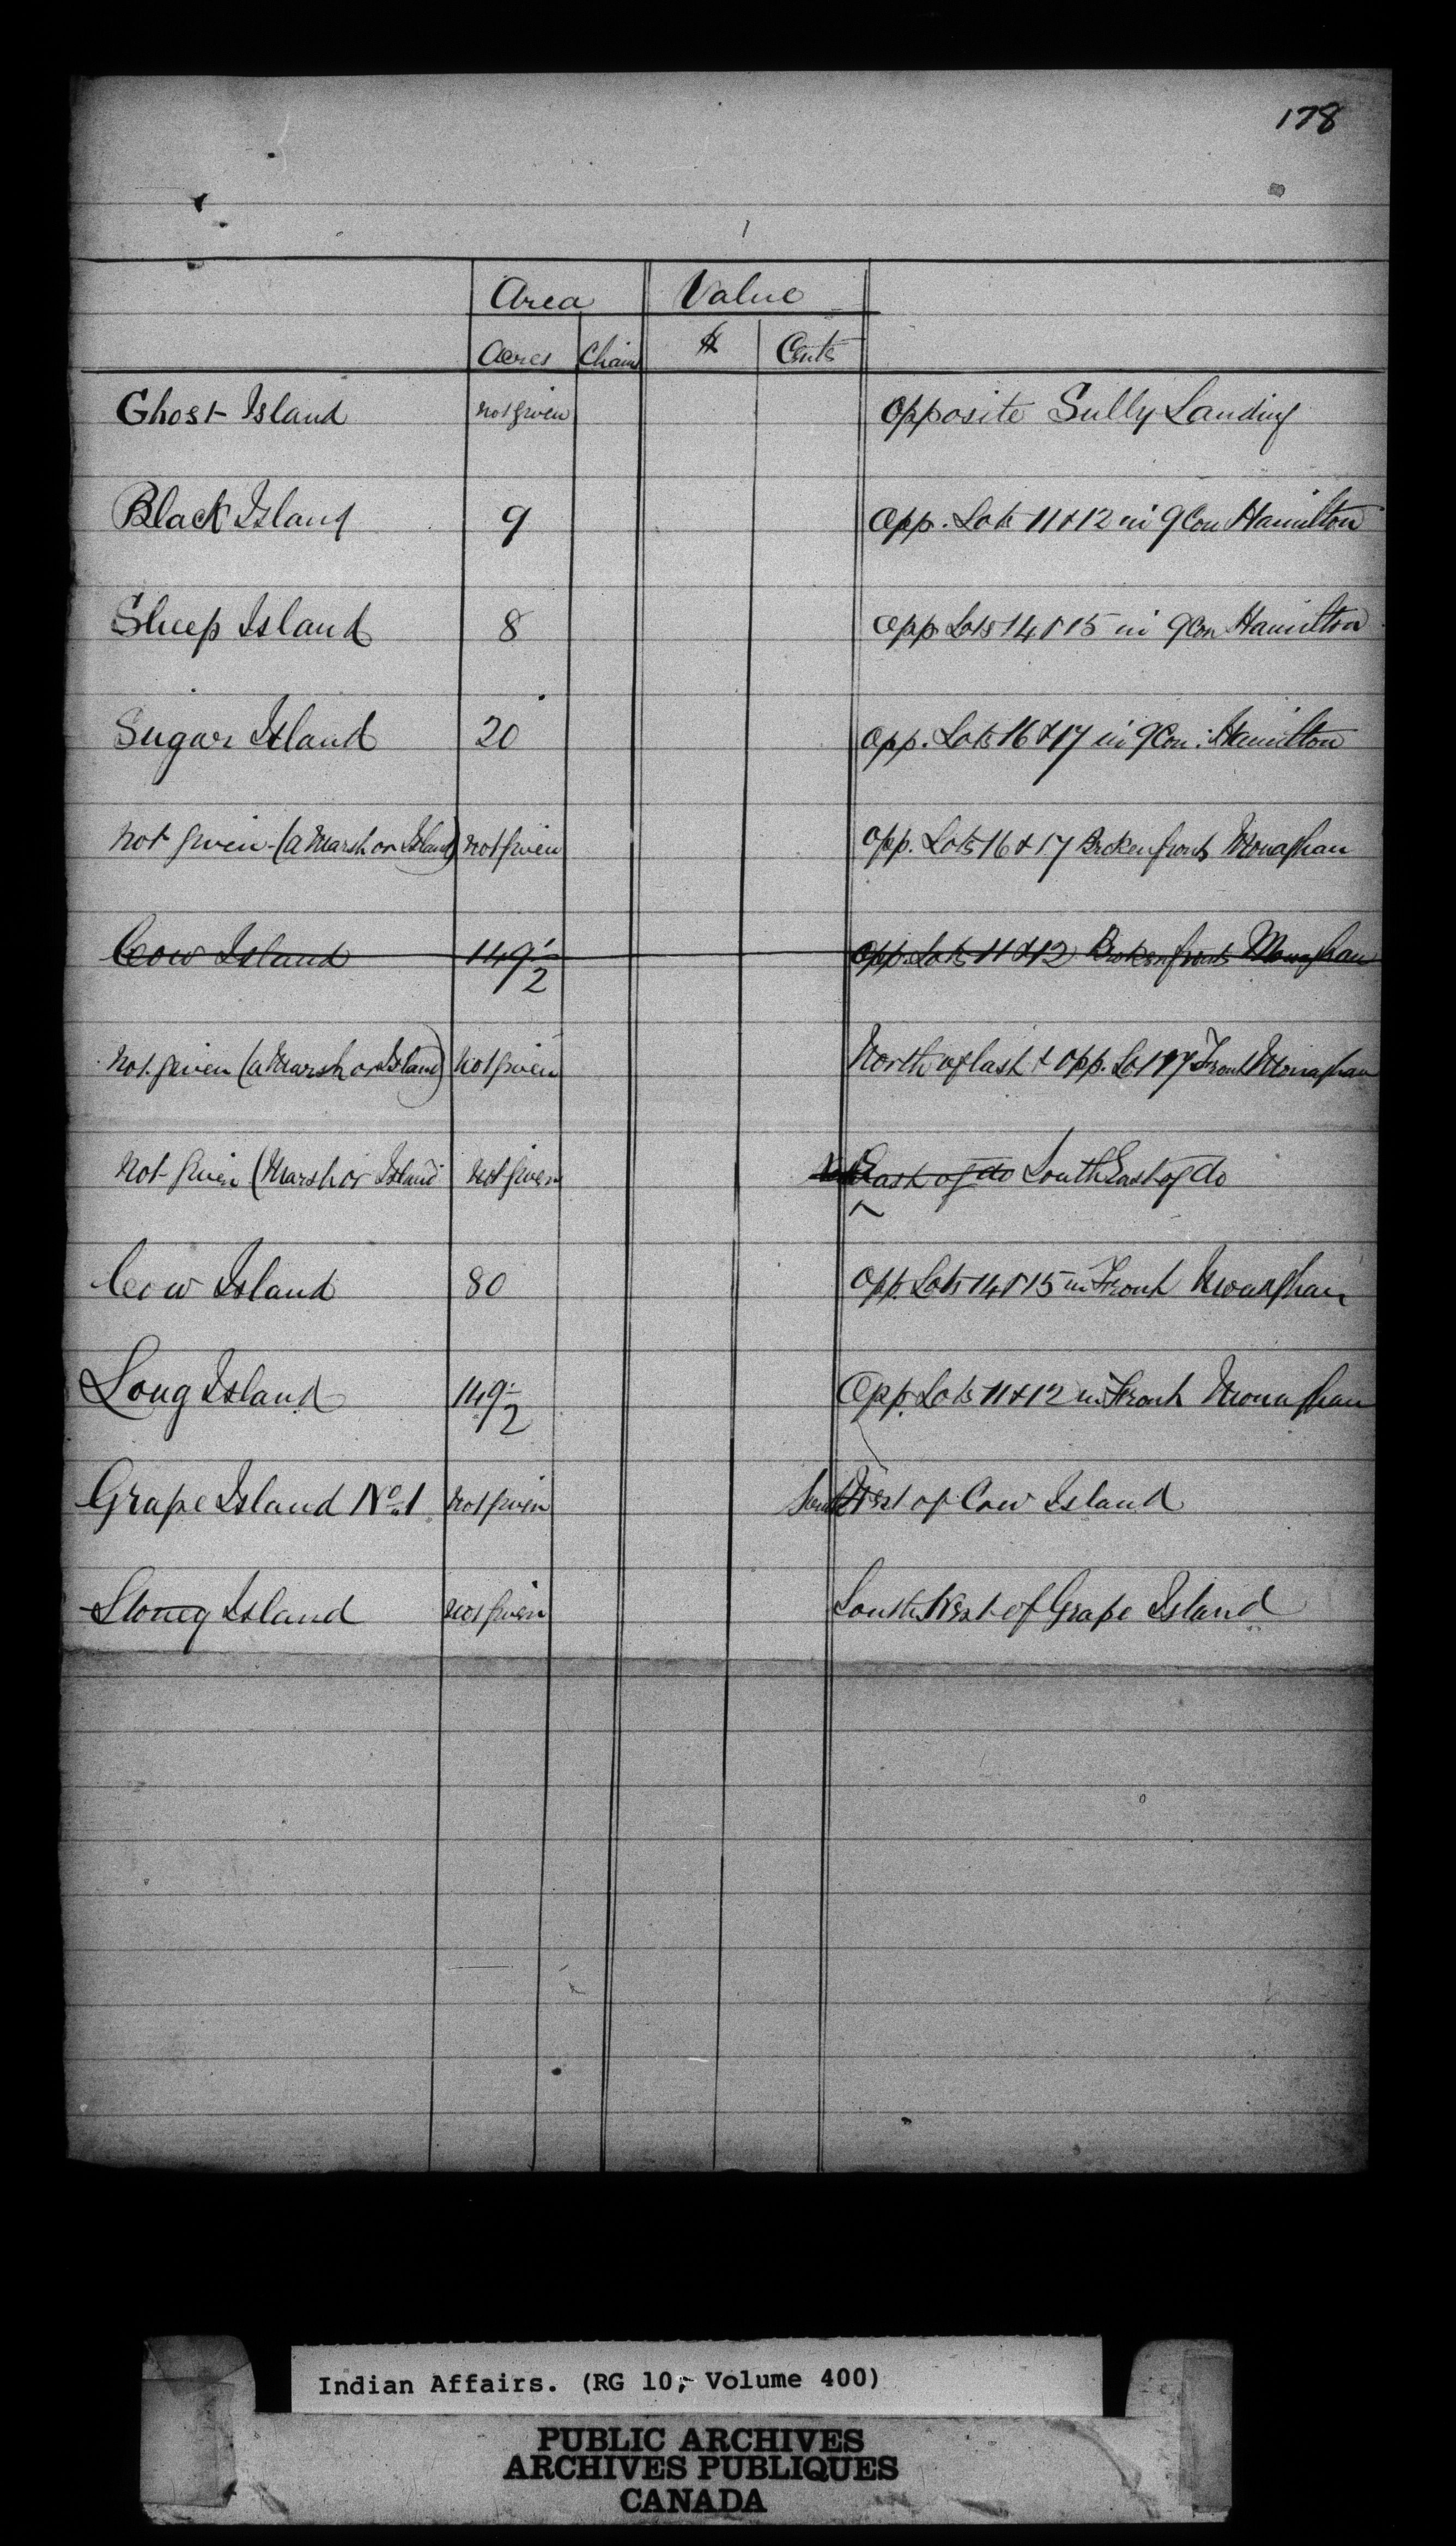 178
Area Value
Acres Chains $ Cents
Ghost Island not given opposite Sully Landing
Black Island 9 opp. Lots 11 & 12 in 9 Con Hamilton
Sheep Island 8 opp Lots 14 & 15 in 9 Con Hamilton
Sugar Island 20 opp. Lots 16 & 17 in 9 Con: Hamilton
not given (a Marsh or Island) not given opp. Lots 16 & 17 Broken fronts Monaghan
Cow Island 149 1/2 opp. Lots 11 & 12 Broken fronts Monaghan
not given (a Marsh or Island) not given North of last & opp. Lot 17 Front Monaghan
not given (Marsh or Island not given East of do South East of do
Cow Island 80 opp. Lots 14 & 15 in Front Monaghan
Long Island 149 1/2 Opp. Lots 11 & 12 in Front Monaghan
Grape Island No. 1 not given South West of Cow Island
Stoney Island not given South West of Grape Island
Indian Affairs. (RG 10, Volume 400)
PUBLIC ARCHIVES
ARCHIVES PUBLIQUES
CANADA